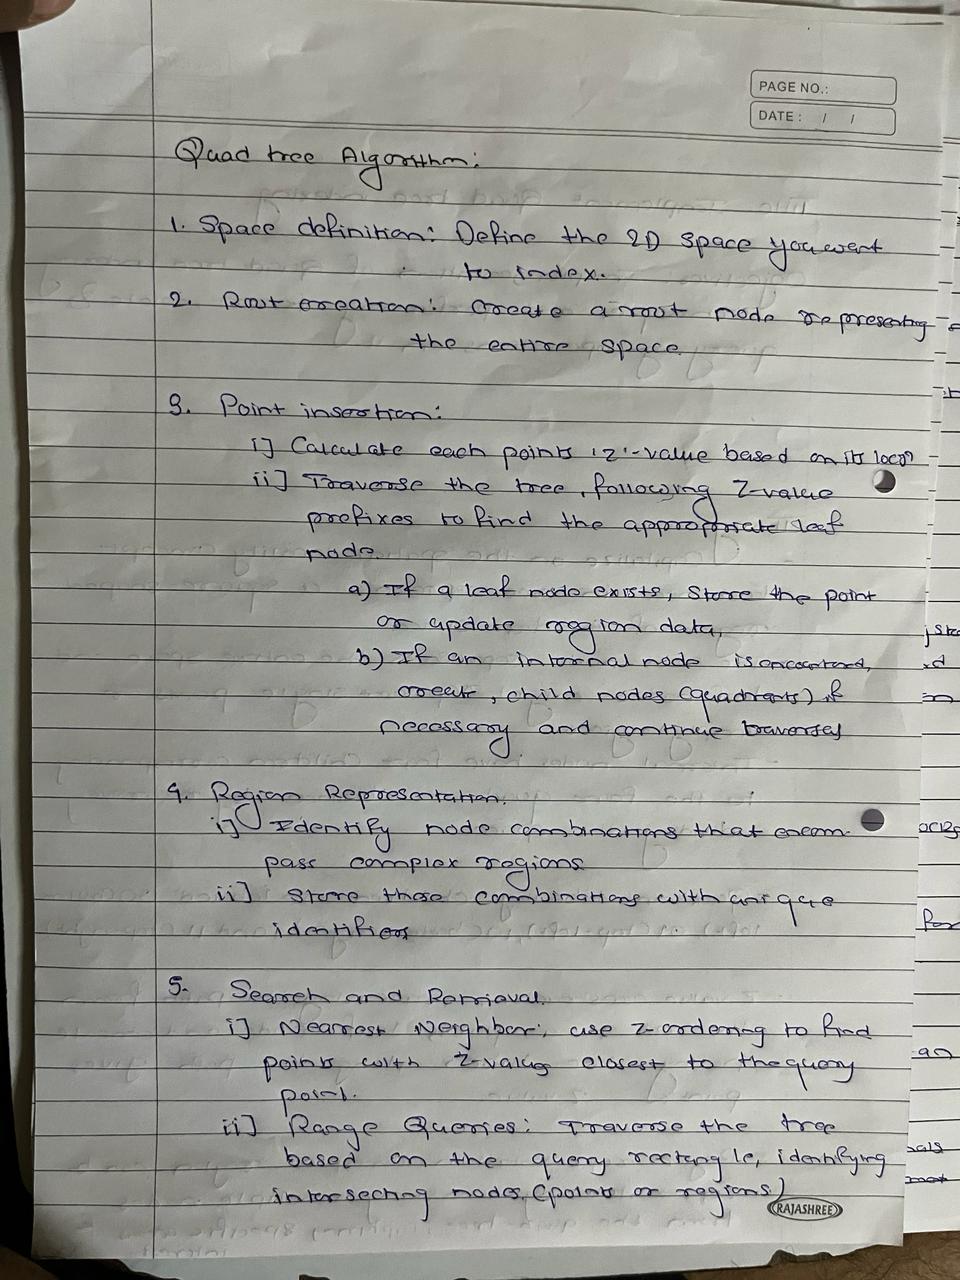 PAGE NO.:
DATE : / /
Quad tree Algorithm:
1. Space definition: Define the 2D space you want
to index.
2. Root creation: Create a root node representing
the entire space.
3. Point insertion:
i] Calculate each points 'z'-value based on its locⁿ
ii] Traverse the tree, following Z-value
prefixes to find the appropriate leaf
node.
a) If a leaf node exists, store the point
or update region data,
b) If an internal node is encountered,
create, child nodes (quadrants) if
necessary and continue traversal
4. Region Representation.
i] Identify node combinations that encom-
pass complex regions
ii] Store those combinations with unique
identifiers
5. Search and Retrieval.
i] Nearest Neighbor: use z-ordering to find
points with Z-values closest to the query
point.
ii] Range Queries: Traverse the tree
based on the query rectangle, identifying
intersecting nodes (points or regions)
RAJASHREE